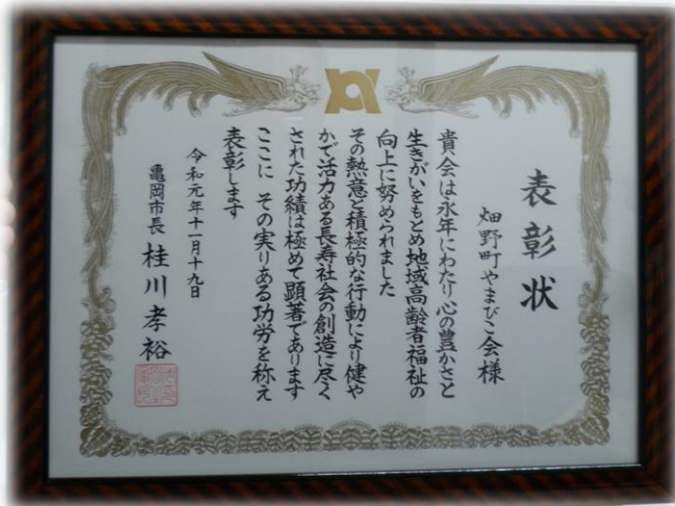 表彰状
畑野町やまびこ会様
貴会は永年にわたり心の豊かさと
生きがいをもとめ地域高齢者福祉の
向上に努められました
その熱意と積極的な行動により健や
かで活力ある長寿社会の創造に尽く
された功績は極めて顕著であります
ここに その実りある功労を称え
表彰します
令和元年十一月十九日
亀岡市長 桂川孝裕